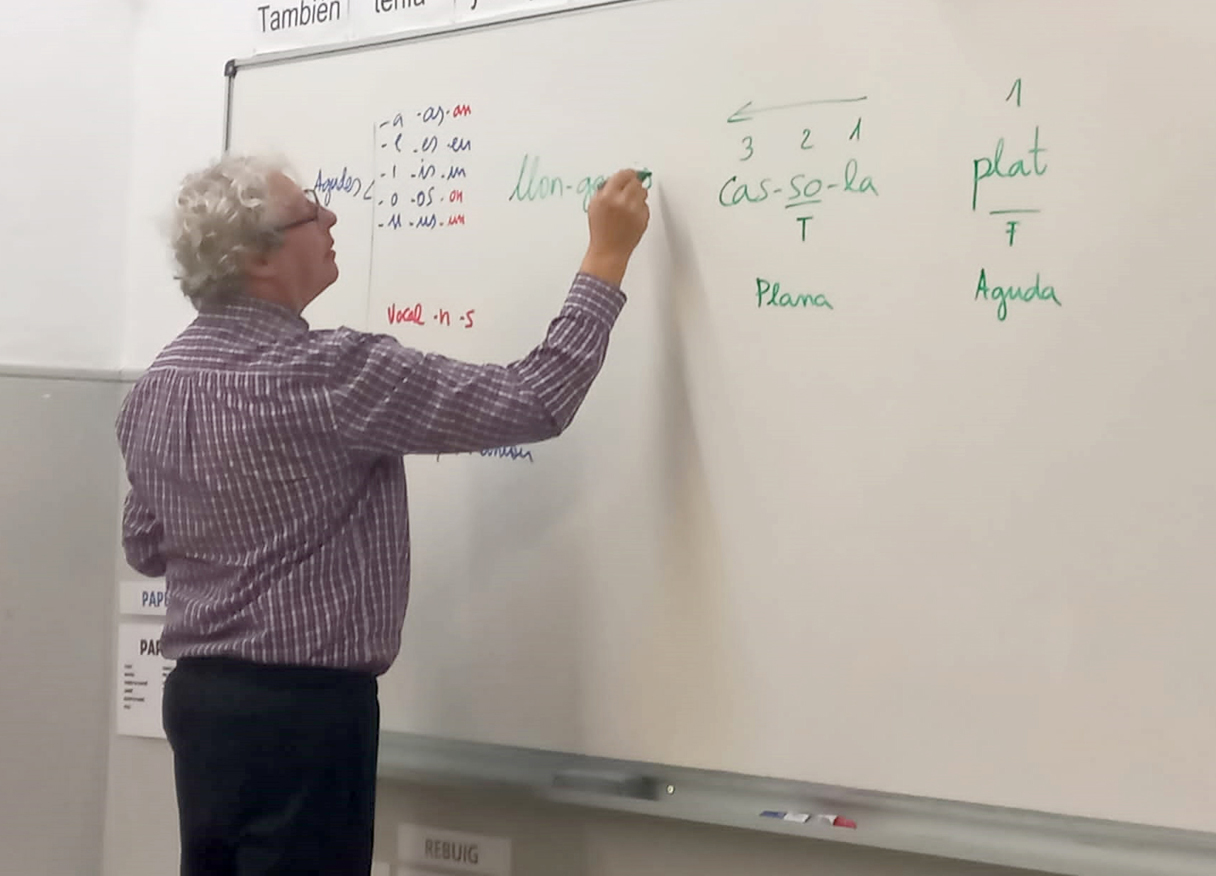 También
-a -as -an
-e -es -en
Agudes
-i -is -in
-o -os -on
-u -us -un
Vocal -n -s
Llon-
3 2 1
cas-so-la
T
Plana
1
plat
T
Aguda
REBUIG